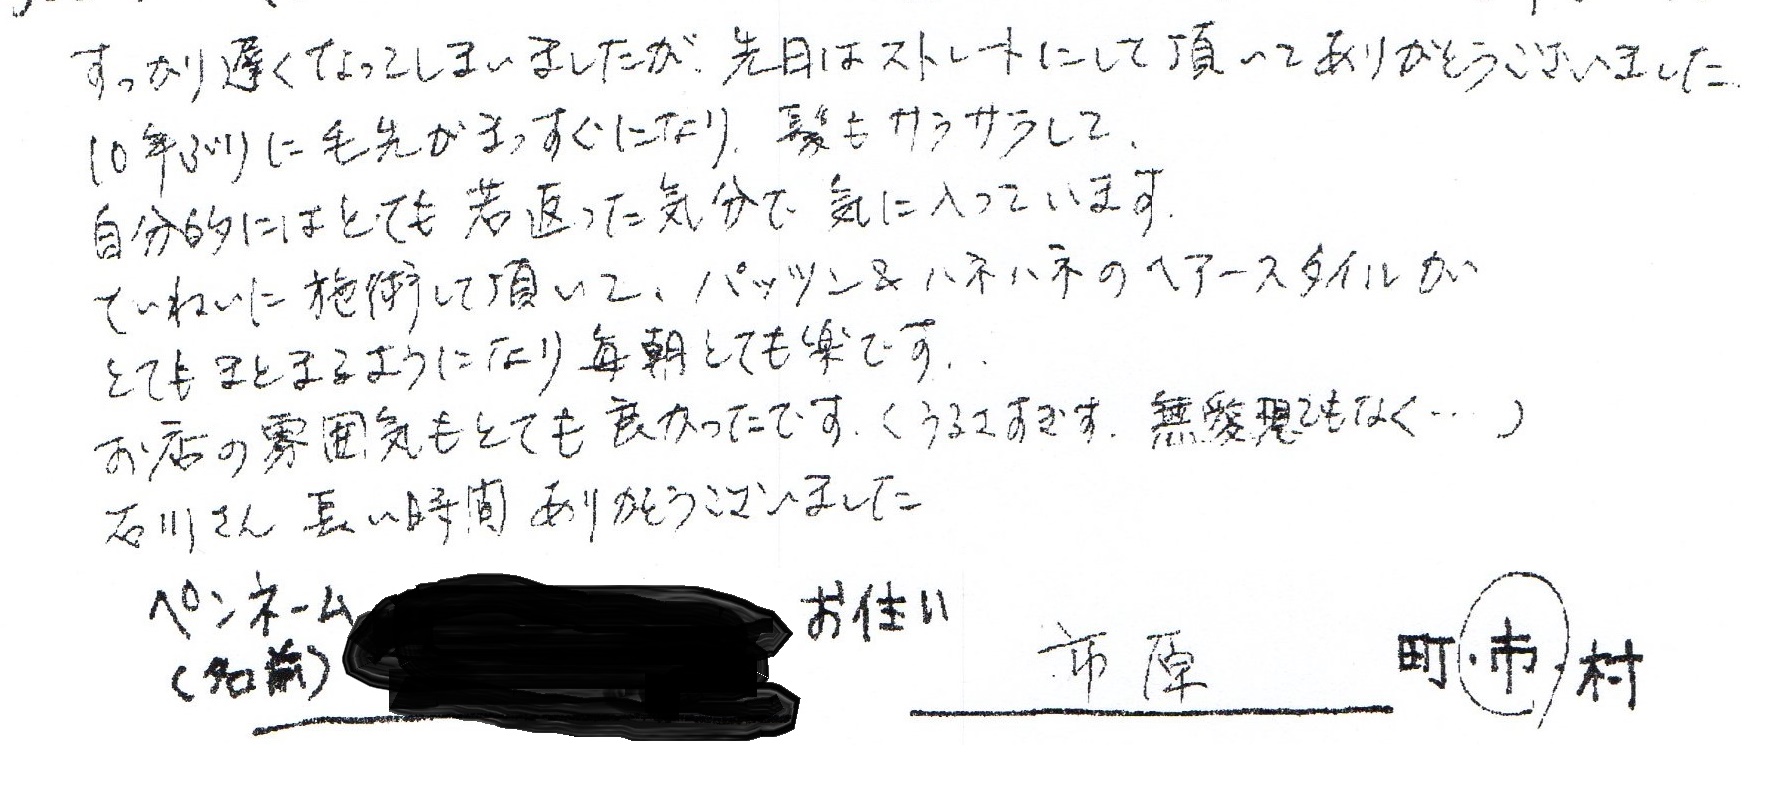 すっかり遅くなってしまいましたが、先日はストレートにして頂いてありがとうございました。
10年ぶりに毛先がまっすぐになり、髪もサラサラして、
自分的にはとても若返った気分で気に入っています。
ていねいに施術して頂いて、パッツン&ハネハネのヘアースタイルが
とてもまとまるようになり毎朝とても楽です。
お店の雰囲気もとても良かったです。(うるさすぎず、無愛想でもなく…)
石川さん 長い時間 ありがとうございました
ペンネーム お住い
(名前) 市原 町・市・村